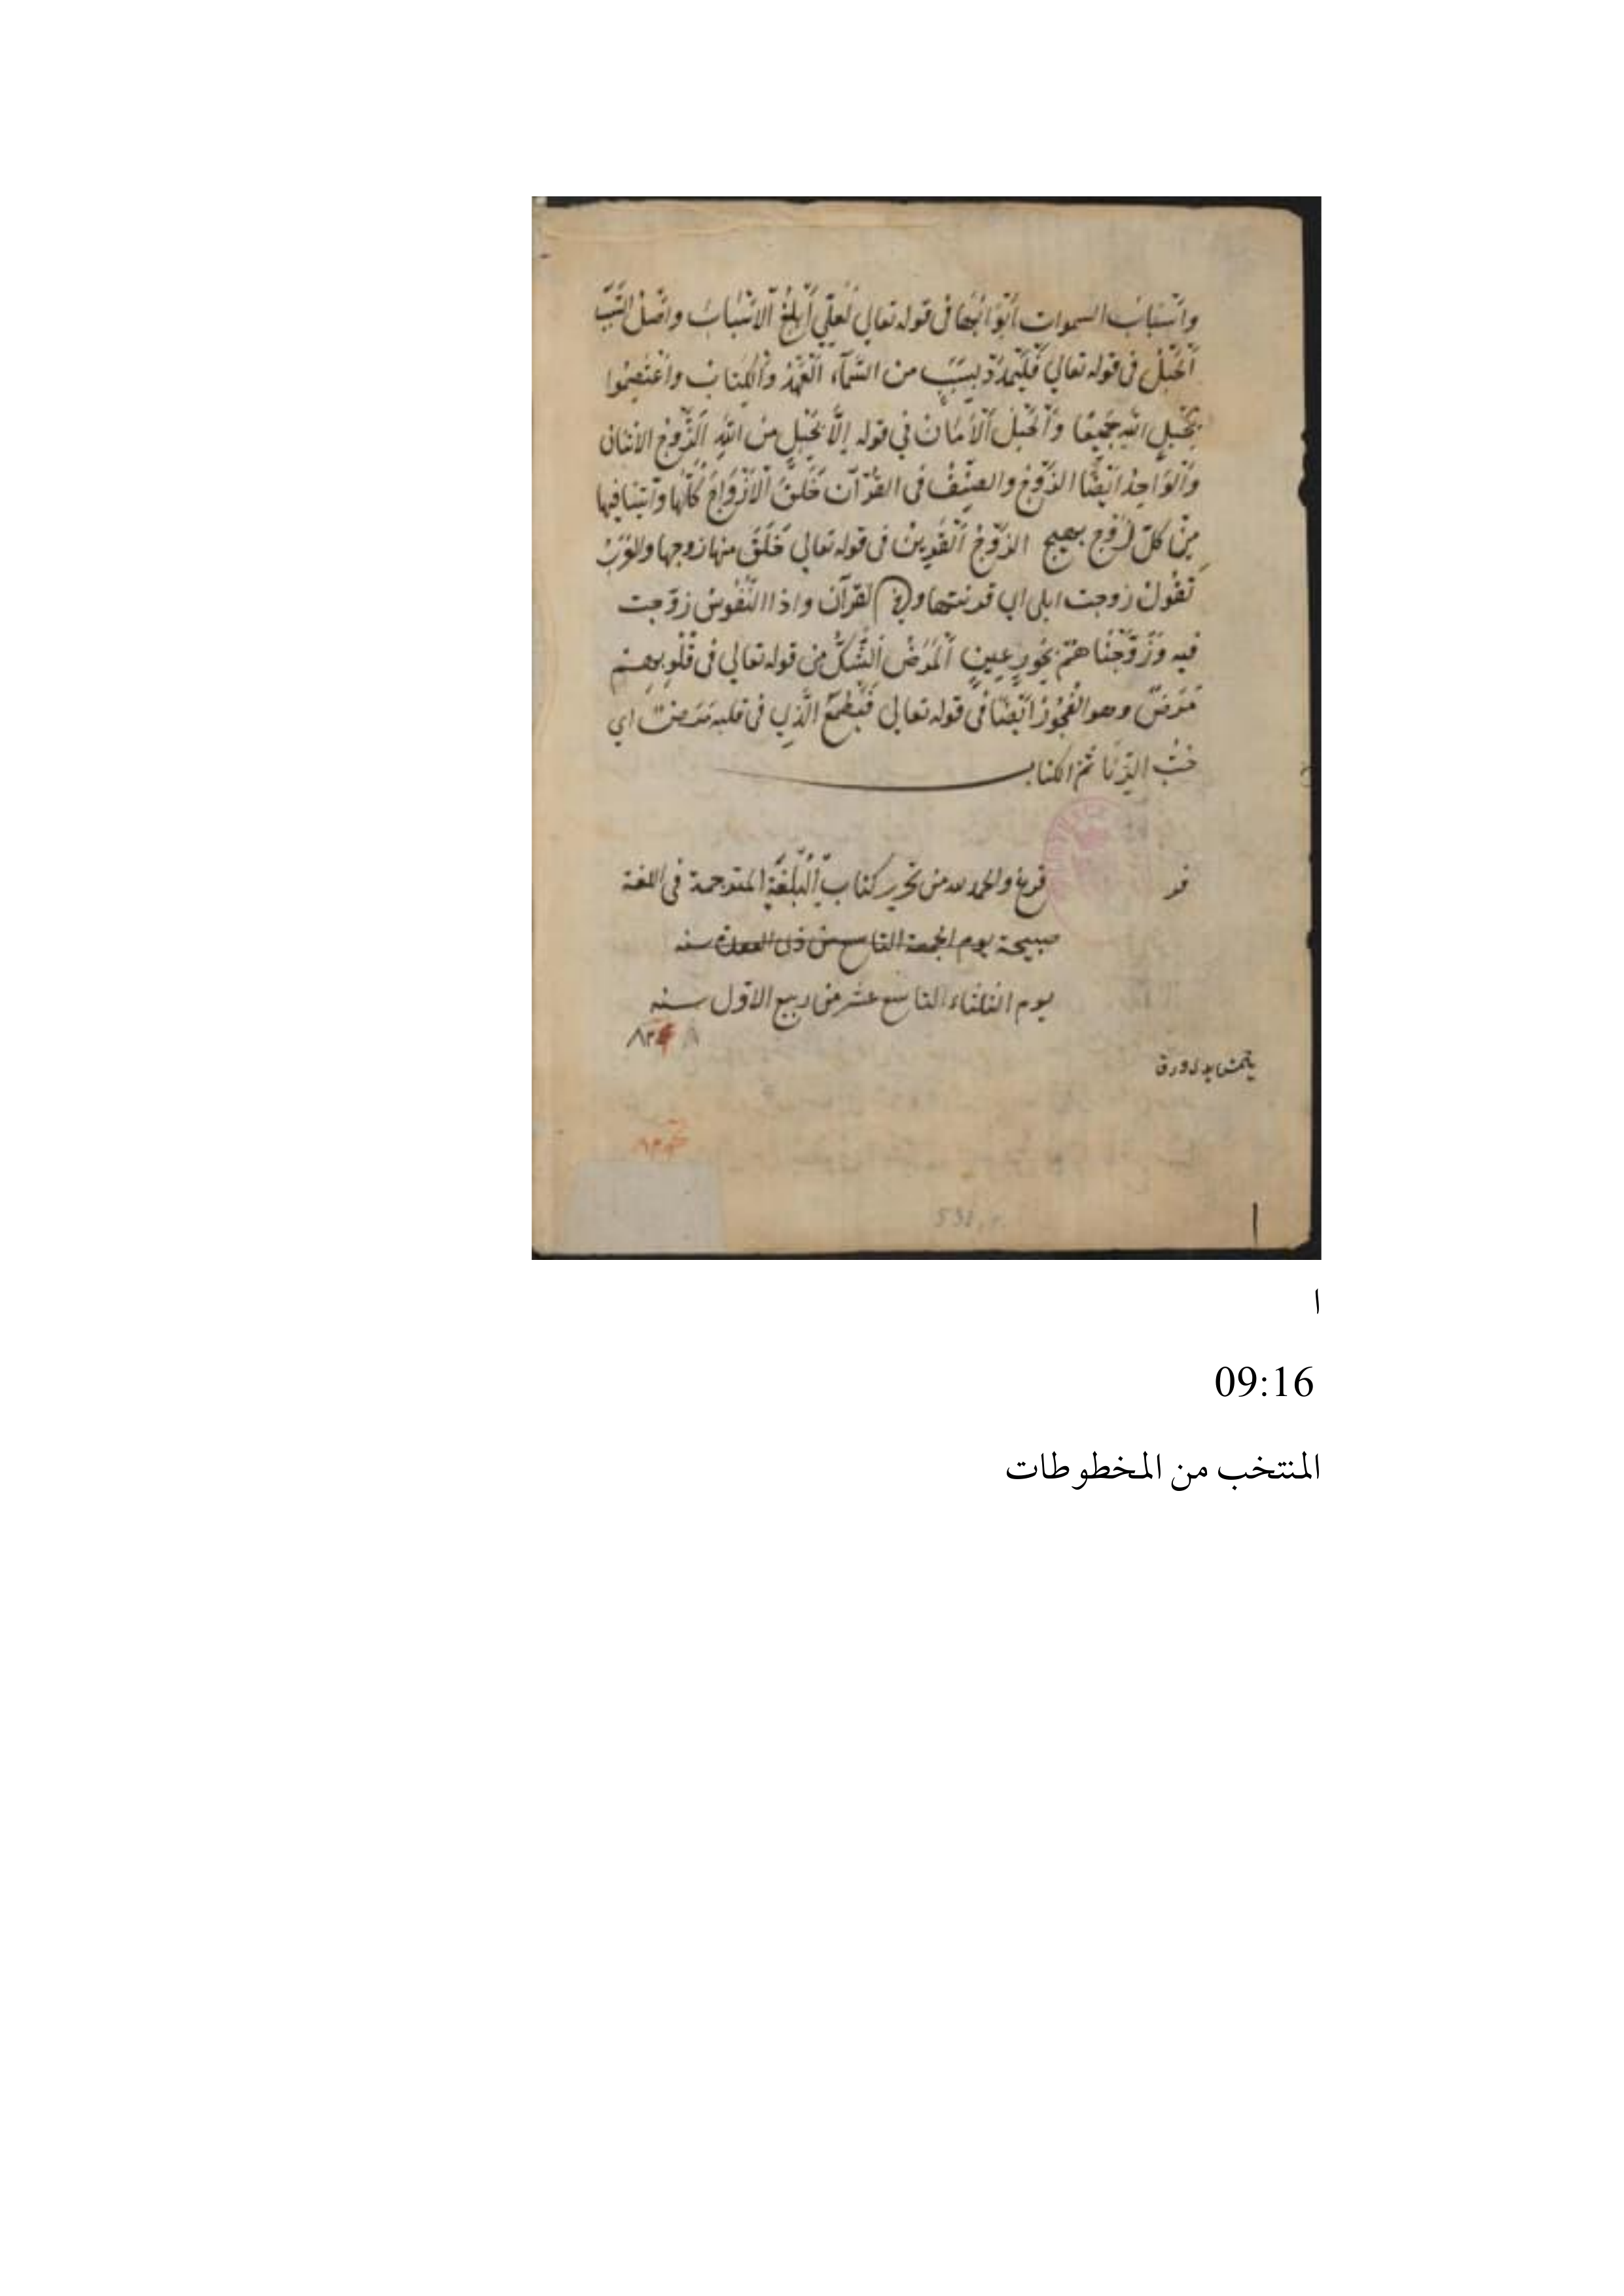 وأسباب السموات أبوابها في قوله تعالي لعلي أبلغ الأسباب وأصل السبب
الحبل في قوله تعالي فليمدد بسبب من السماء العهد والكتاب واعتصموا
بحبل الله جميعا والحبل الأمان في قوله إلا بحبل من الله الزوج الاثنان
والواحد أيضا الزوج والصنف في القرآن خلق الأزواج كلها وأنبتنا فيها
من كل زوج بهيج الزوج القرين في قوله تعالي خلق منها زوجها والعرب
تقول زوجت ابلي اي قرنتها وفي القرآن واذا النفوس زوجت
فيه وزوجناهم بحور عين المرض الشك من قوله تعالي في قلوبهم
مرض وهو الفجور أيضا في قوله تعالي فيطمع الذي في قلبه مرض اي
حب الزنا تم الكتاب
فر فرغ والحمد لله من تحرير كتاب البلغة المترجمة في اللغة
صبيحة يوم الجمعة التاسع من ذي القعدة سنه
يوم الثلثاء التاسع عشر من ربيع الاول سنه
ا
09:16
المنتخب من المخطوطات